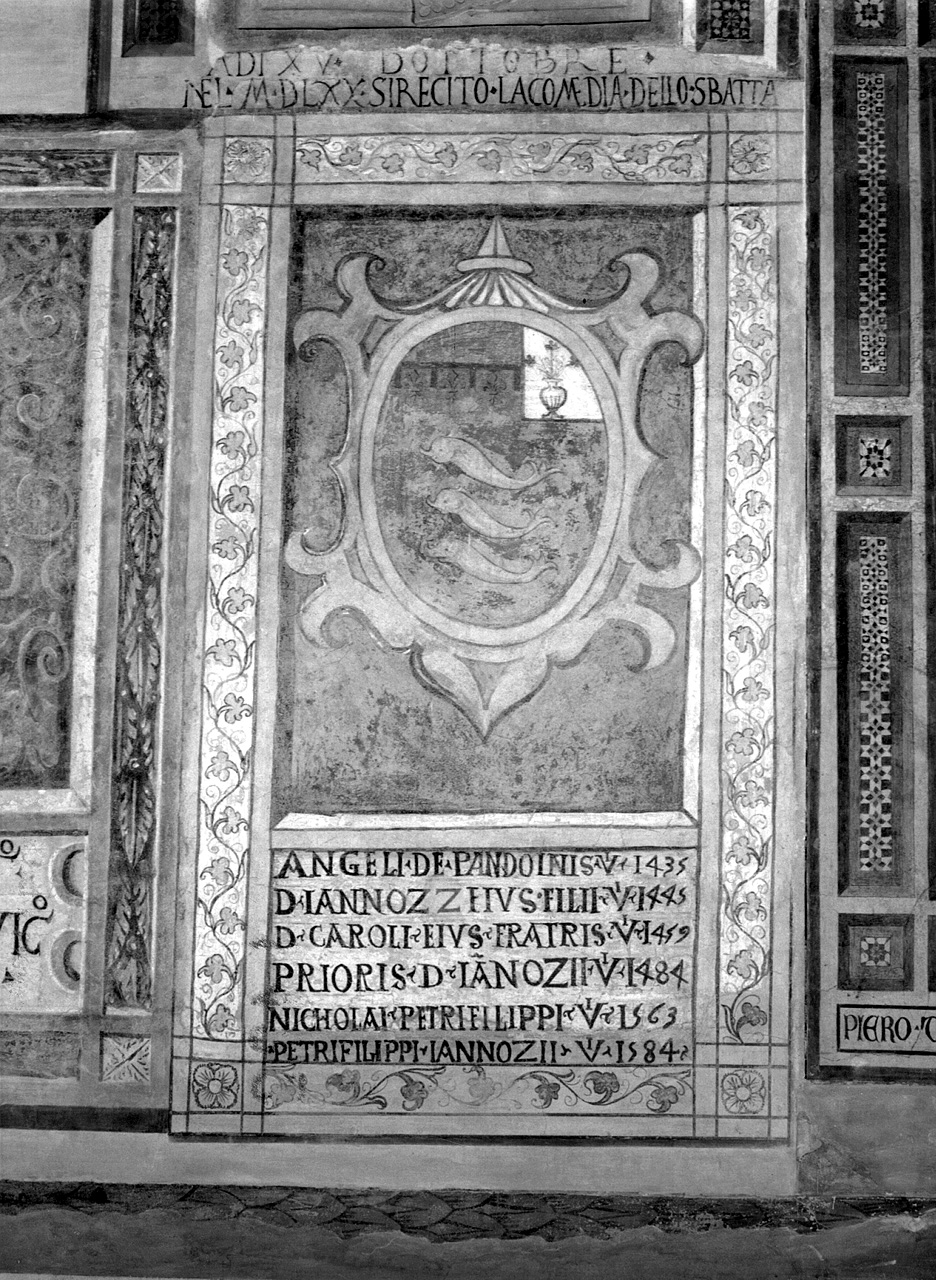 ADI XV· DOTTOBRE·
NEL·M·DLXX·SIRECITO·LACOMEDIA·DELLO·SBATTA
ANGELI·DE·PANDOLNIS·V·1435
D·IANNOZZEIVS·FILII·V·1445
D·CAROLI·EIVS·FRATRIS·V·1459
PRIORIS·D·IÃNOZII·V·1484
NICHOLAI·PETRIFILIPPI·V·1563
·PETRIFILIPPI·IANNOZII·V·1584
VIC
PIERO·